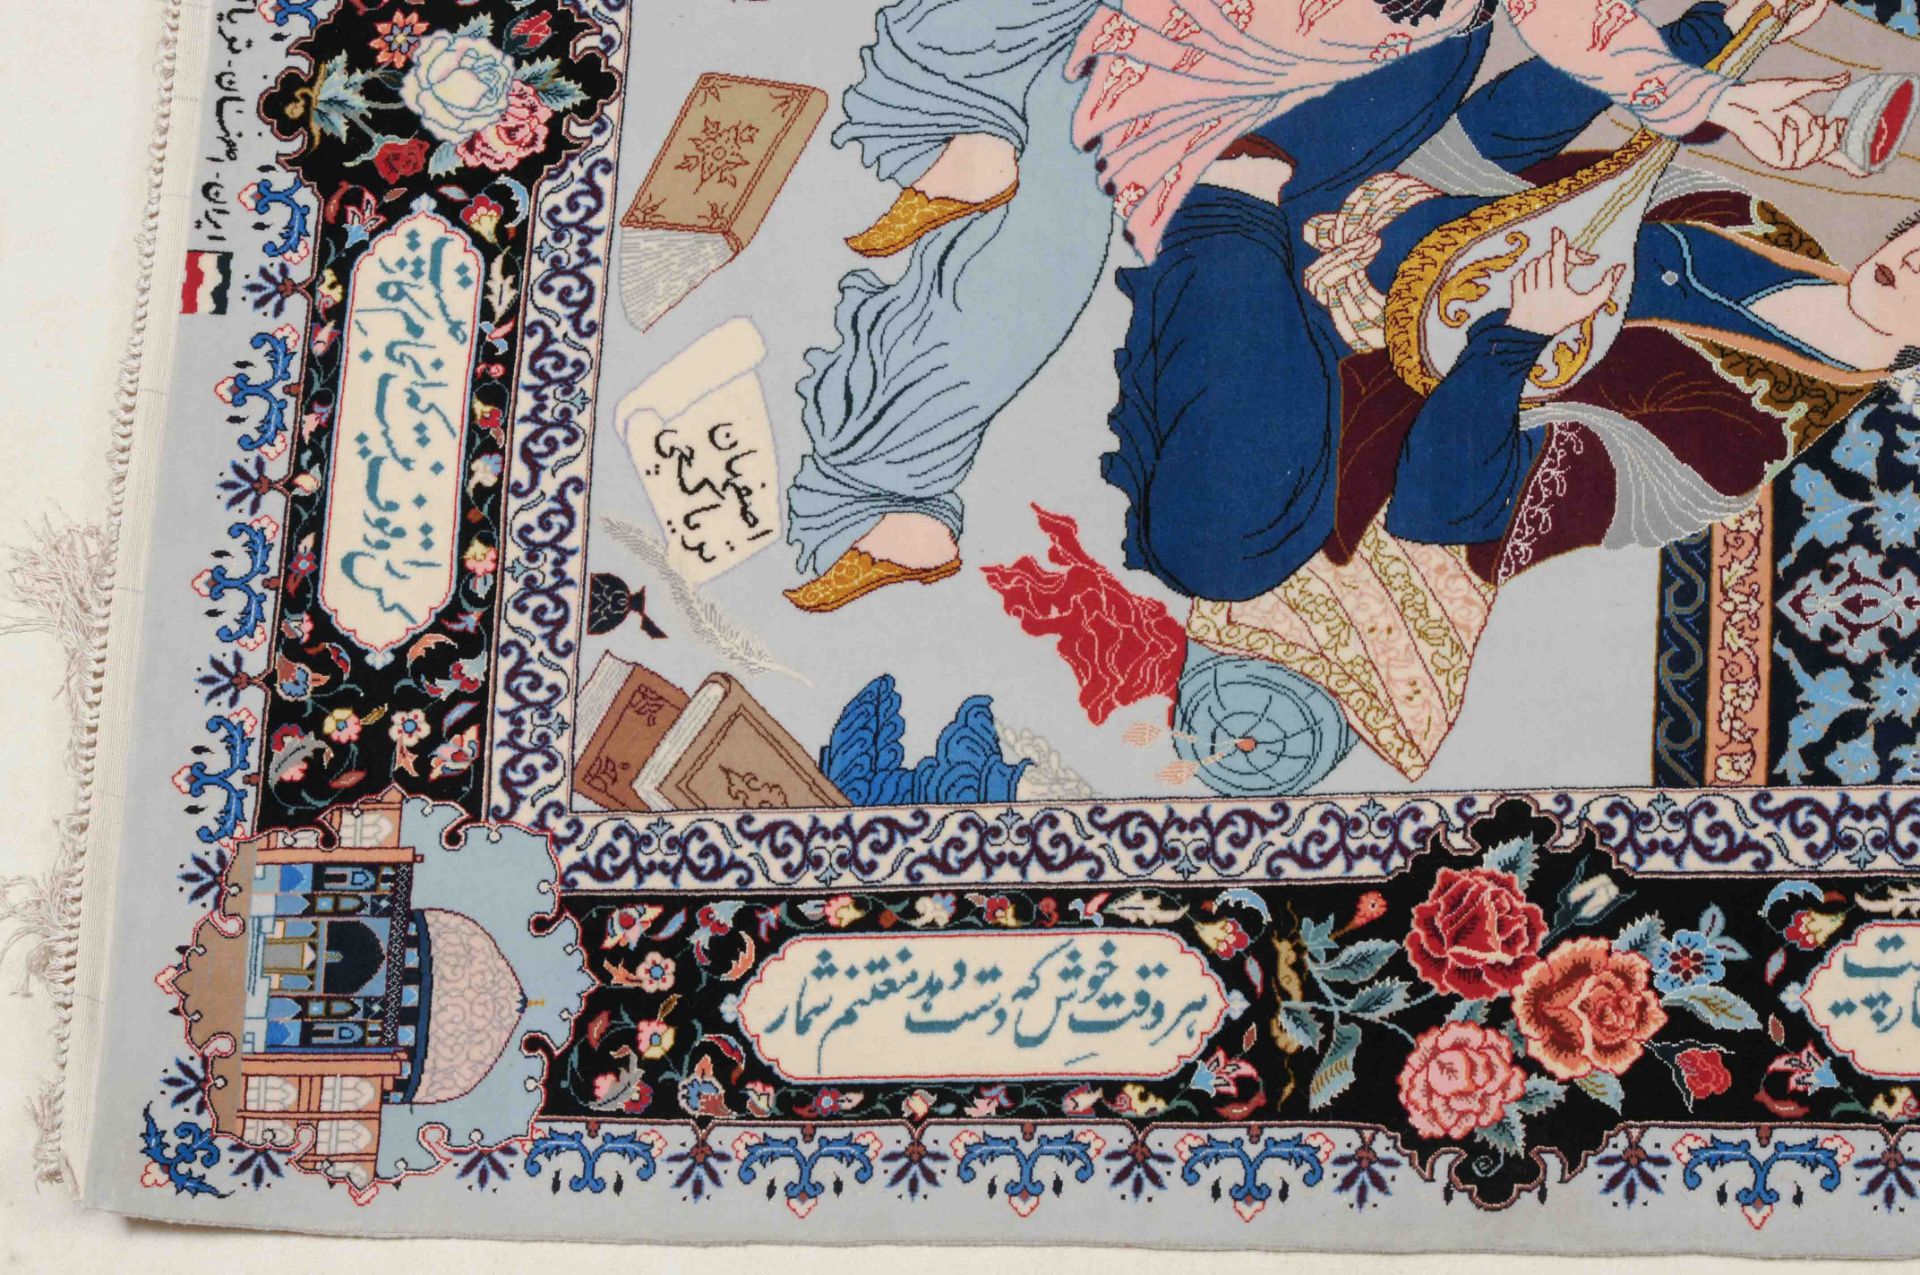 ایران - اصفهان - تریا
کس را وقوف نیست که انجام کار چیست
اصفهان
تریاکچی
هر وقت خوش که دست دهد مغتنم شمار
چیست